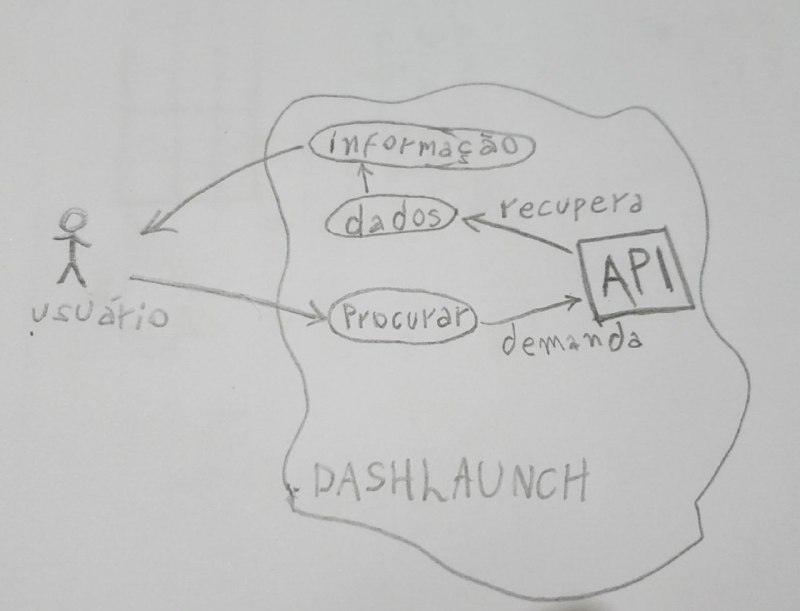 informação
dados
recupera
API
usuário
Procurar
demanda
DASHLAUNCH